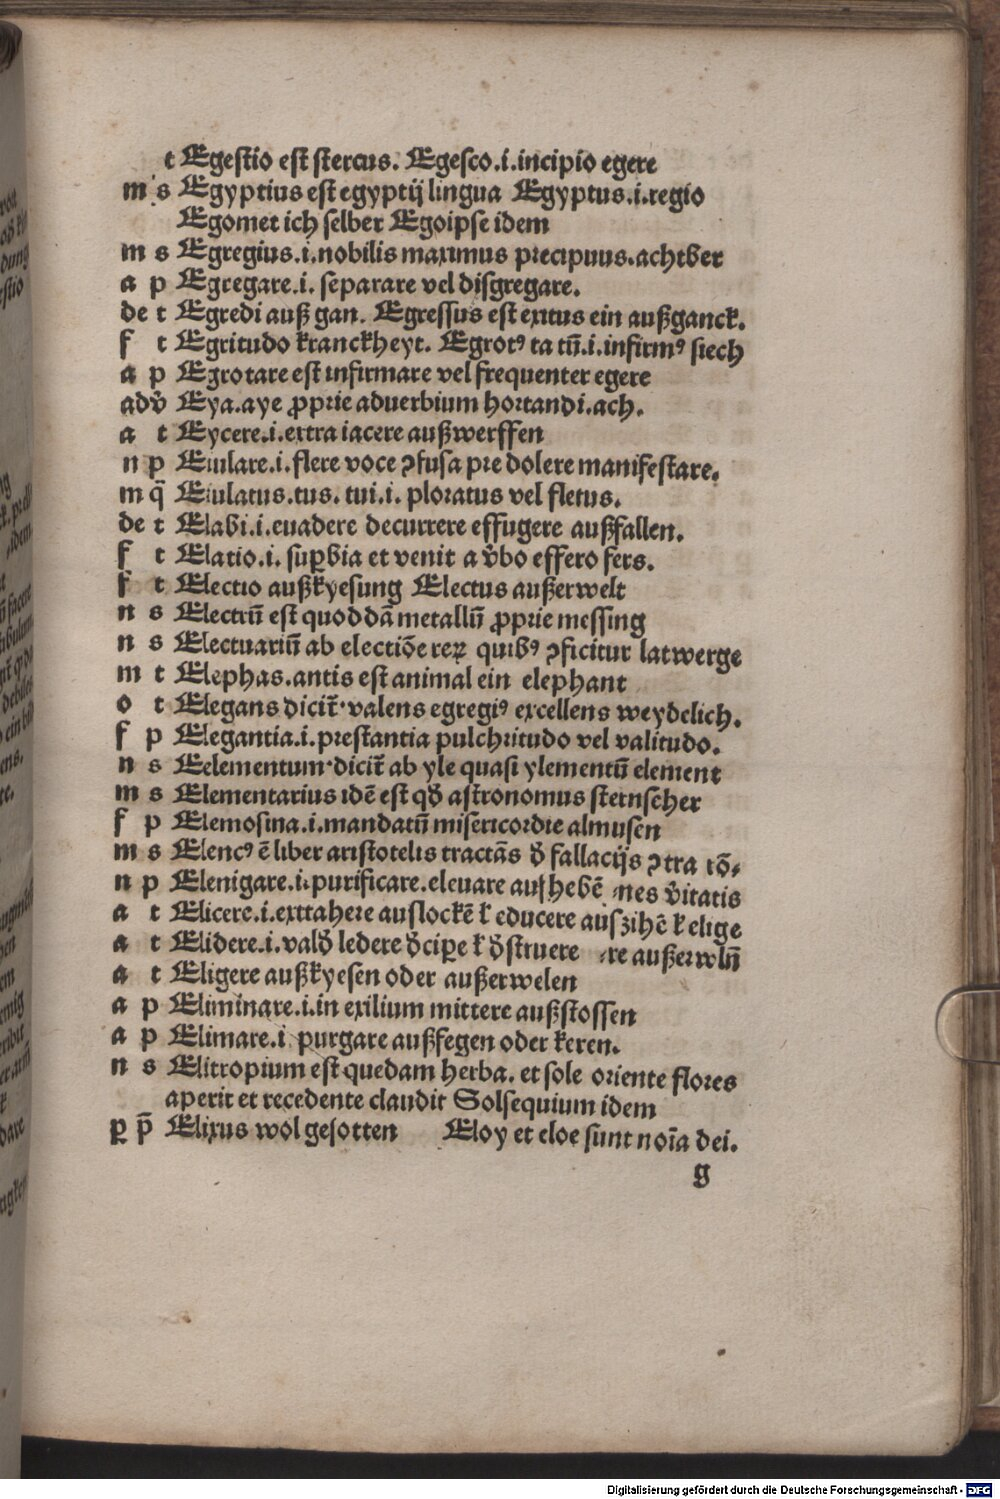 t Egestio est stercus. Egesco.i.incipio egere
m s Egyptius est egyptij lingua Egyptus.i.regio
Egomet ich selber Egoipse idem
m s Egregius.i.nobilis maximus precipuus.achtber
a p Egregare.i. separare vel disgregare.
de t Egredi auß gan. Egressus est exitus ein außganck.
f t Egritudo kranckheyt. Egrotꝰ ta tū.i.infirmꝰ siech
a p Egrotare est infirmare vel frequenter egere
adv̄ Eya.aye ꝓprie aduerbium hortandi.ach.
a t Eycere.i.extra iacere außwerffen
n p Eiulare.i.flere voce ꝯfusa pre dolere manifestare.
m q̄ Eiulatus.tus. tui.i. ploratus vel fletus.
de t Elabi.i.euadere decurrere effugere außfallen.
f t Elatio.i. suꝑbia et venit a v̄bo effero fers.
f t Electio außkyesung Electus außerwelt
n s Electrū est quoddā metallū ꝓprie messing
n s Electuariū ab electiōe reꝝ quibꝰ ꝯficitur latwerge
m t Elephas.antis est animal ein elephant
o t Elegans dicit̄ valens egregiꝰ excellens weydelich.
f p Elegantia.i.prestantia pulchritudo vel valitudo.
n s Eelementum dicit̄ ab yle quasi ylementū element
m s Elementarius idē est qđ astronomus sternscher
f p Elemosina.i.mandatū misericordie almusen
m s Elencꝰ ē liber aristotelis tractās đ fallacijs ꝯtra tō⸗
n p Elenigare.i.purificare.eleuare aufhebē nes v̄itatis
a t Elicere.i.exttahere auslockē ł educere auszihē ł elige
a t Elidere.i.valđ ledere đcipe ł đstruere re außerwlñ
a t Eligere außkyesen oder außerwelen
a p Eliminare.i.in exilium mittere außstossen
a p Elimare.i purgare außfegen oder keren.
n s Elitropium est quedam herba. et sole oriente flores
aperit et recedente claudit Solsequium idem
ꝑ p̄ Elixus wol gesotten Eloy et eloe sunt noīa dei.
g
Digitalisierung gefördert durch die Deutsche Forschungsgemeinschaft - DFG